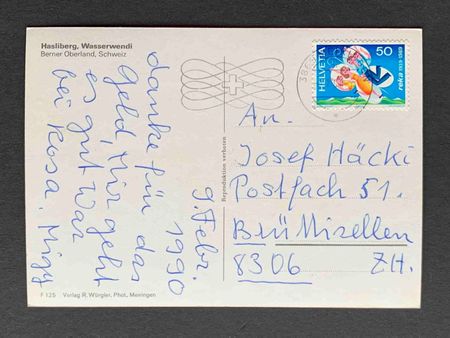 Hasliberg, Wasserwendi
Berner Oberland, Schweiz
9. Febr.
1990
danke für das
Geld, Mir geht
es gut war
bei Rosa.
F 125 Verlag R. Würgler, Phot., Meiringen
Reproduktion verboten
HELVETIA
50
reka 1939-1989
An.
Josef Häcki
Postfach 51.
Brüttisellen
8306 ZH.